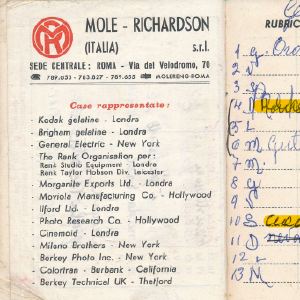 MR
MOLE - RICHARDSON
(ITALIA) s.r.l.
SEDE CENTRALE: ROMA - Via del Velodromo, 70
MOLERENO-ROMA
Case rappresentate:
- Kodak gelatine - Londra
- Brigham gelatine - Londra
- General Electric - New York
- The Rank Organisation per:
Rank Studio Equipment - Londra
Rank Taylor Hobson Div. Leicester
- Morganite Exports Ltd. - Londra
- Moviola Manufacturing Co. - Hollywood
- Ilford Ltd. - Londra
- Photo Research Co. - Hollywood
- Cinemoid - Londra
- Milano Brothers - New York
- Berkey Photo Inc. - New York
- Colortran - Burbank - California
- Berkey Technical UK - Thetford
RUBRIC
1 g.
2 V
3
4 D
5 L
6 M
7 M.
8 G
9 V
10 S
11 D
12 L
13 M